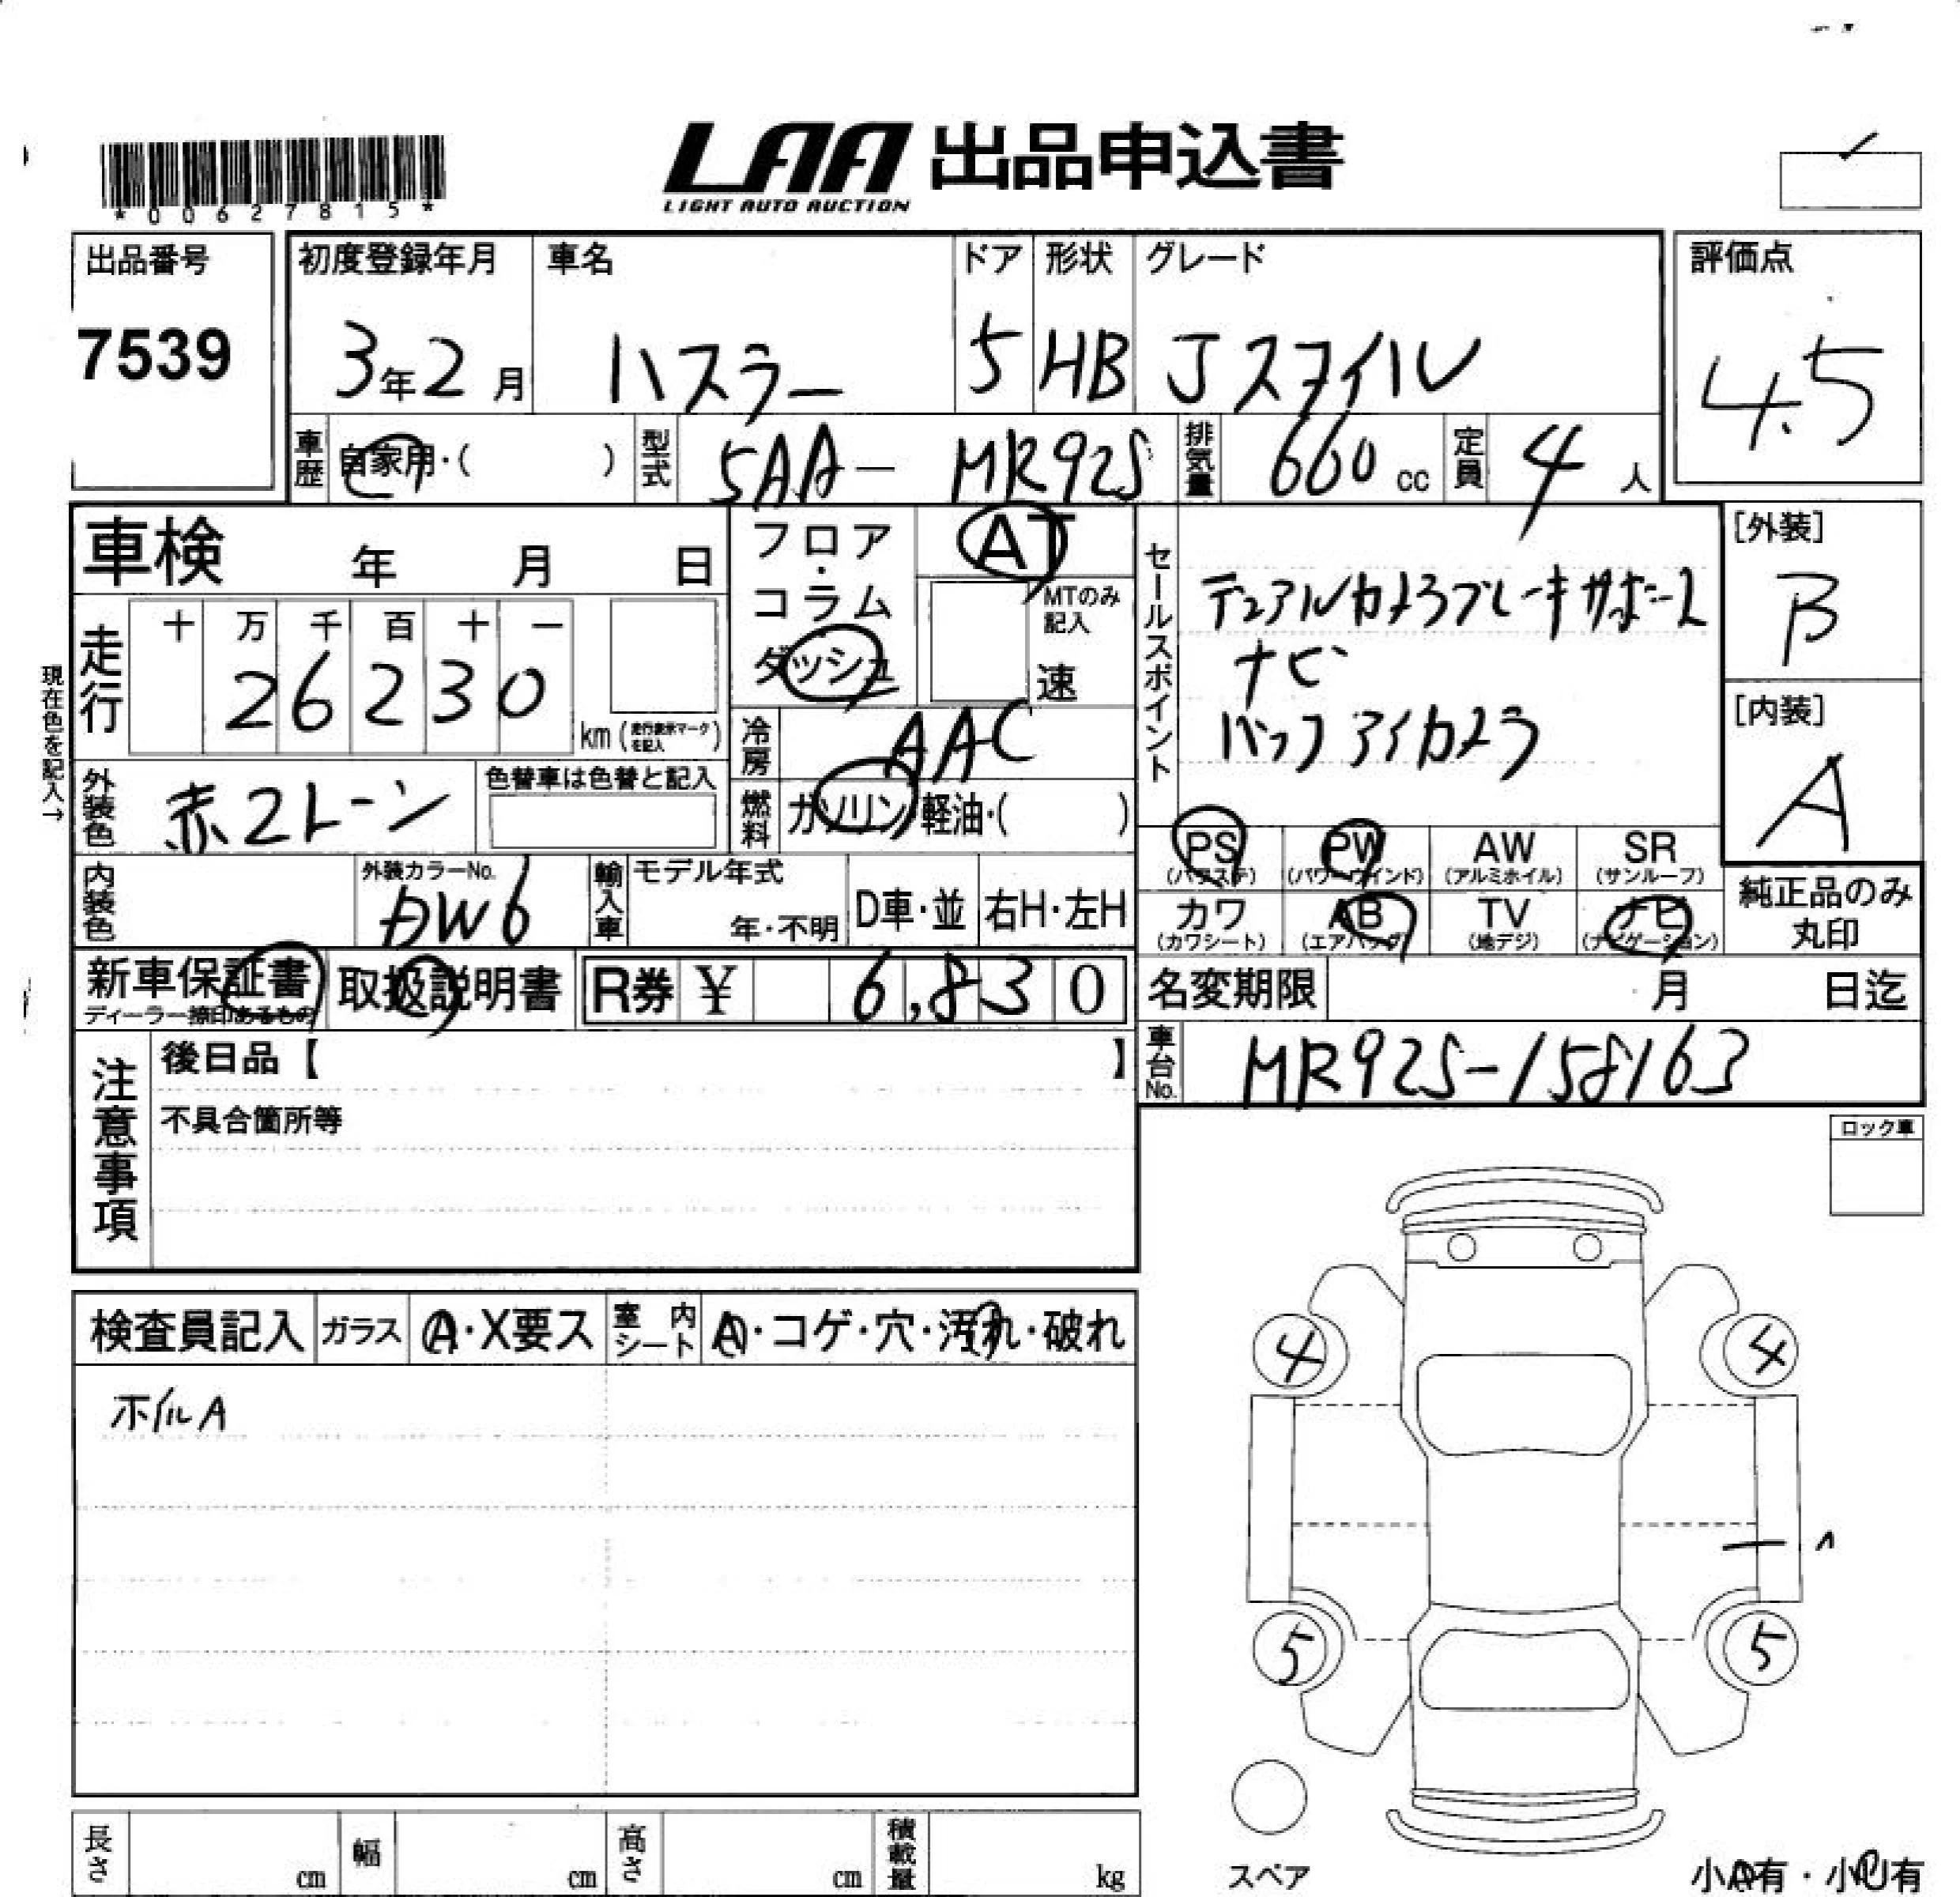 *00627815*
LAA 出品申込書
LIGHT AUTO AUCTION
出品番号
7539
初度登録年月
3年2月
車名
ハスラー
ドア
5
形状
HB
グレード
Jスタイル
評価点
4.5
車歴 自家用・( )
型式 5AA-MR92S
排気量 660 cc
定員 4人
車検 年 月 日
走行 十 万 千 百 十 一
26230
km(走行表示マークを記入)
現在色を記入→
フロア・コラム
ダッシュ
AT
MTのみ記入
速
冷房 AAC
燃料 ガソリン・軽油・( )
セールスポイント
デュアルカメラブレーキサポート
ナビ
バックアイカメラ
[外装]
B
[内装]
A
外装色 赤2トーン
色替車は色替と記入
内装色
外装カラーNo.
DW6
輸入車
モデル年式
年・不明
D車・並
右H・左H
PS (パワステ)
PW (パワーウインド)
AW (アルミホイル)
SR (サンルーフ)
カワ (カワシート)
AB (エアバッグ)
TV (地デジ)
ナビ (ナビゲーション)
純正品のみ
丸印
新車保証書
ディーラー捺印あるもの
取扱説明書
R券 ¥ 6,830
名変期限 月 日迄
車台No. MR92S-158163
注意事項
後日品【 】
不具合箇所等
ロック車
検査員記入
ガラス A・X要ス
室内シート A・コゲ・穴・汚れ・破れ
ホイルA
4
4
5
5
スペア
長さ cm
幅 cm
高さ cm
積載量 kg
小A有・小U有